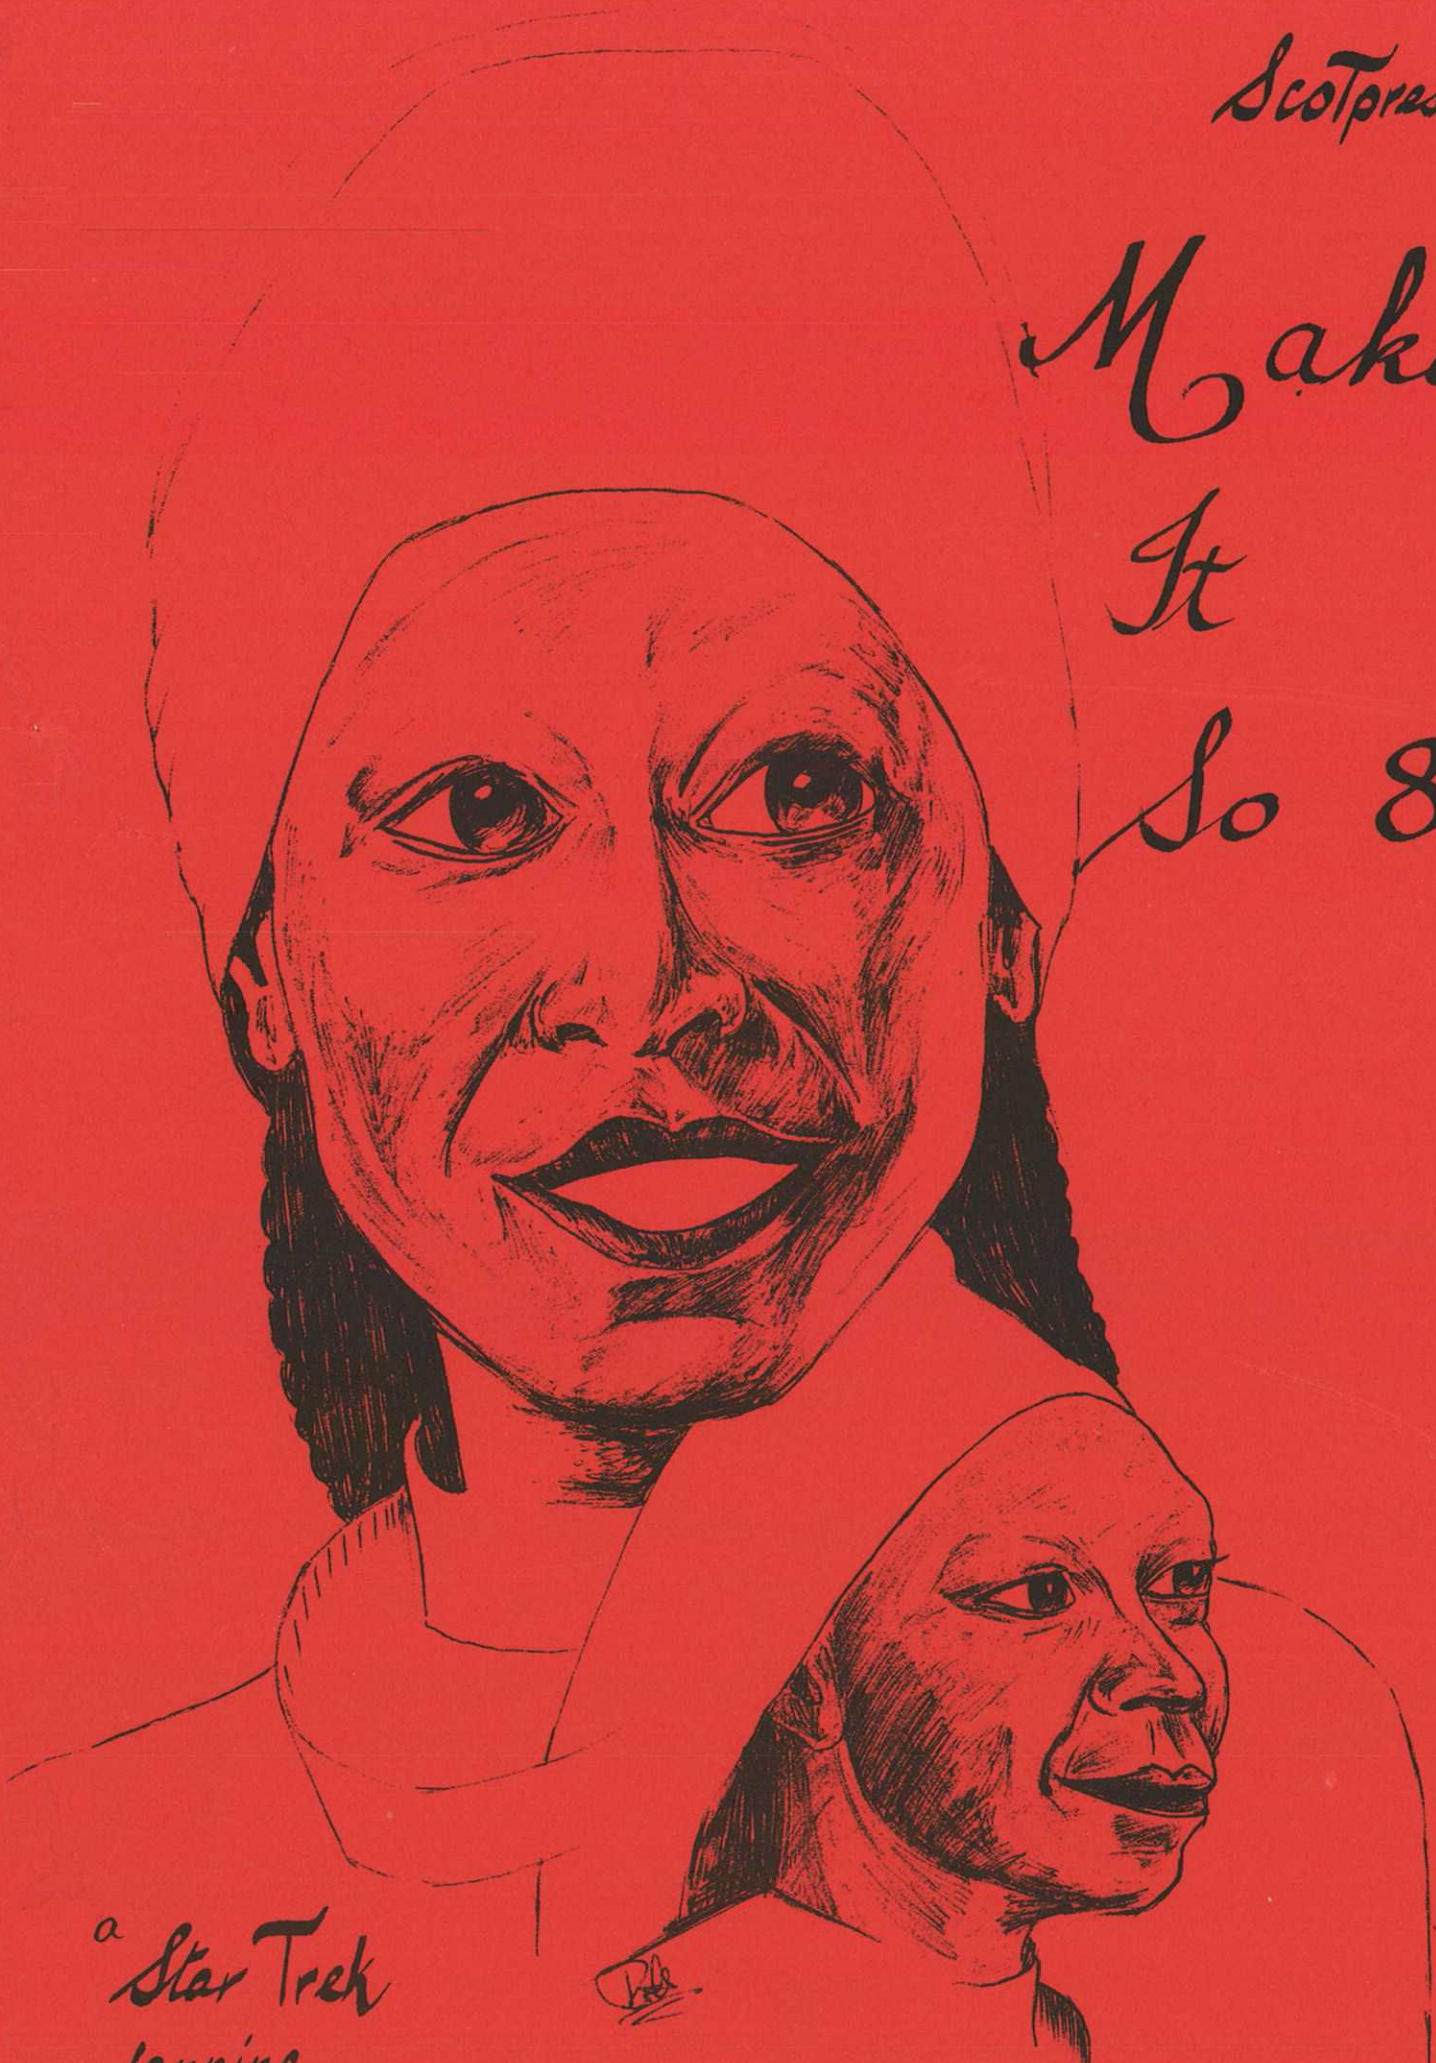 Scotpres
Make
It
So 8
a
Star Trek